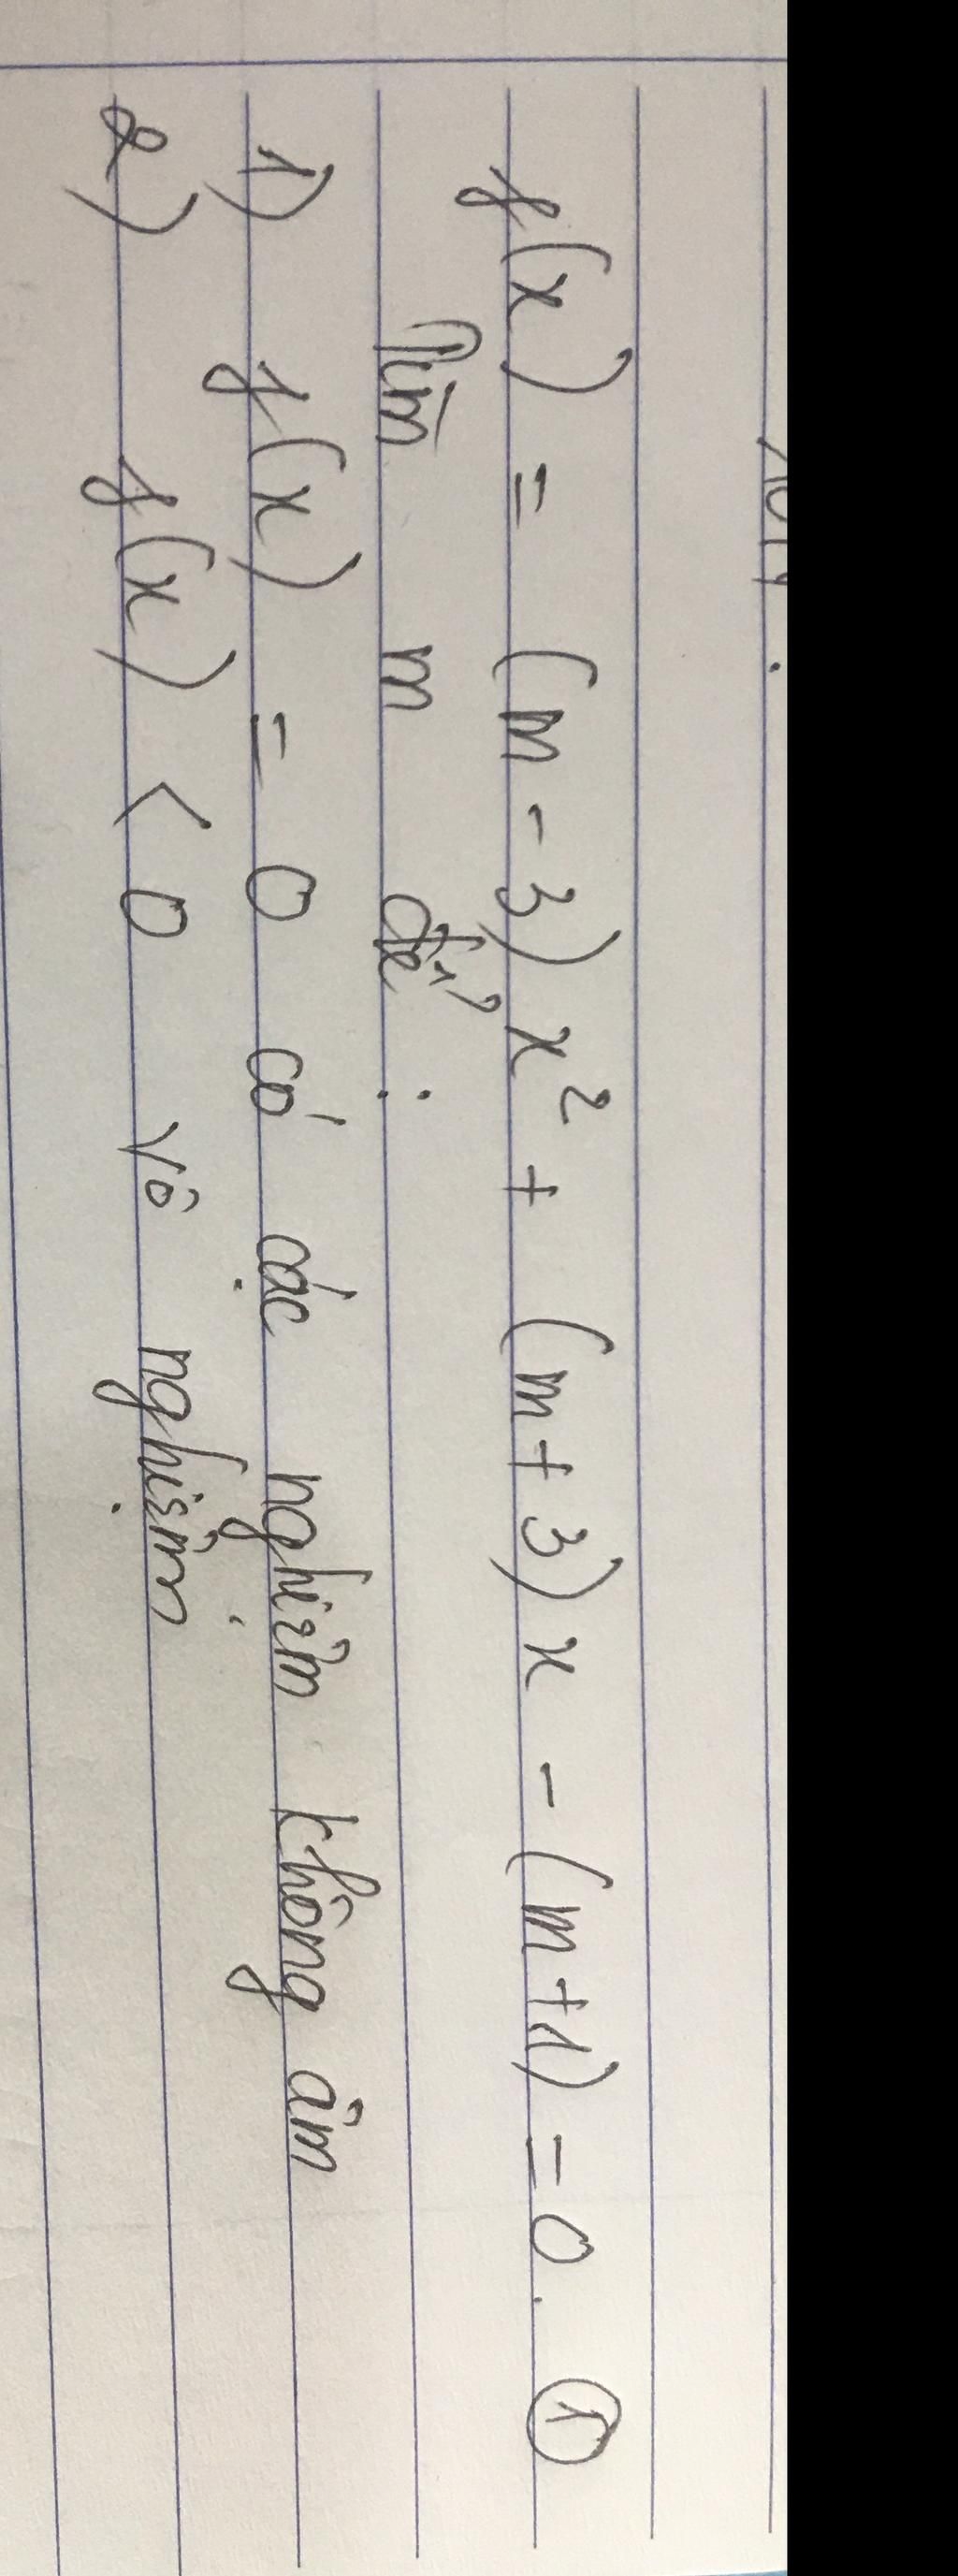 f(x) = (m - 3) x² + (m + 3) x - (m + 1) = 0. ①
Tìm m để :
1) f(x) = 0 có các nghiệm không âm
2) f(x) < 0 vô nghiệm